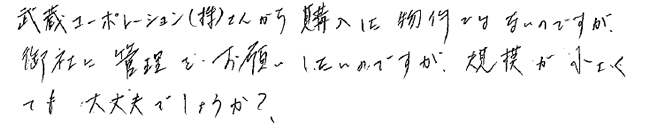 武蔵コーポレーション(株)さんから購入した物件ではないのですが、
御社に管理をお願いしたいのですが、規模が小さく
ても大丈夫でしょうか?